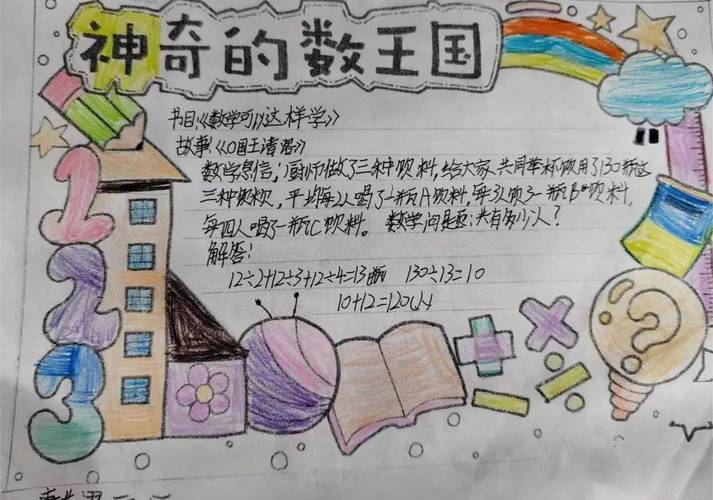 神奇的数王国
书目:《数学可以这样学》
故事:《0国王请客》
数学信息:厨师做了三种饮料,给大家共同举杯饮用了130瓶这
三种饮料,平均每2人喝了一瓶A饮料,每3人饮了一瓶B饮料,
每四人喝了一瓶C饮料。 数学问题:共有多少人?
解答:
12÷2+12÷3+12÷4=13瓶 130÷13=10
10+12=120(人)
1
2
3
?